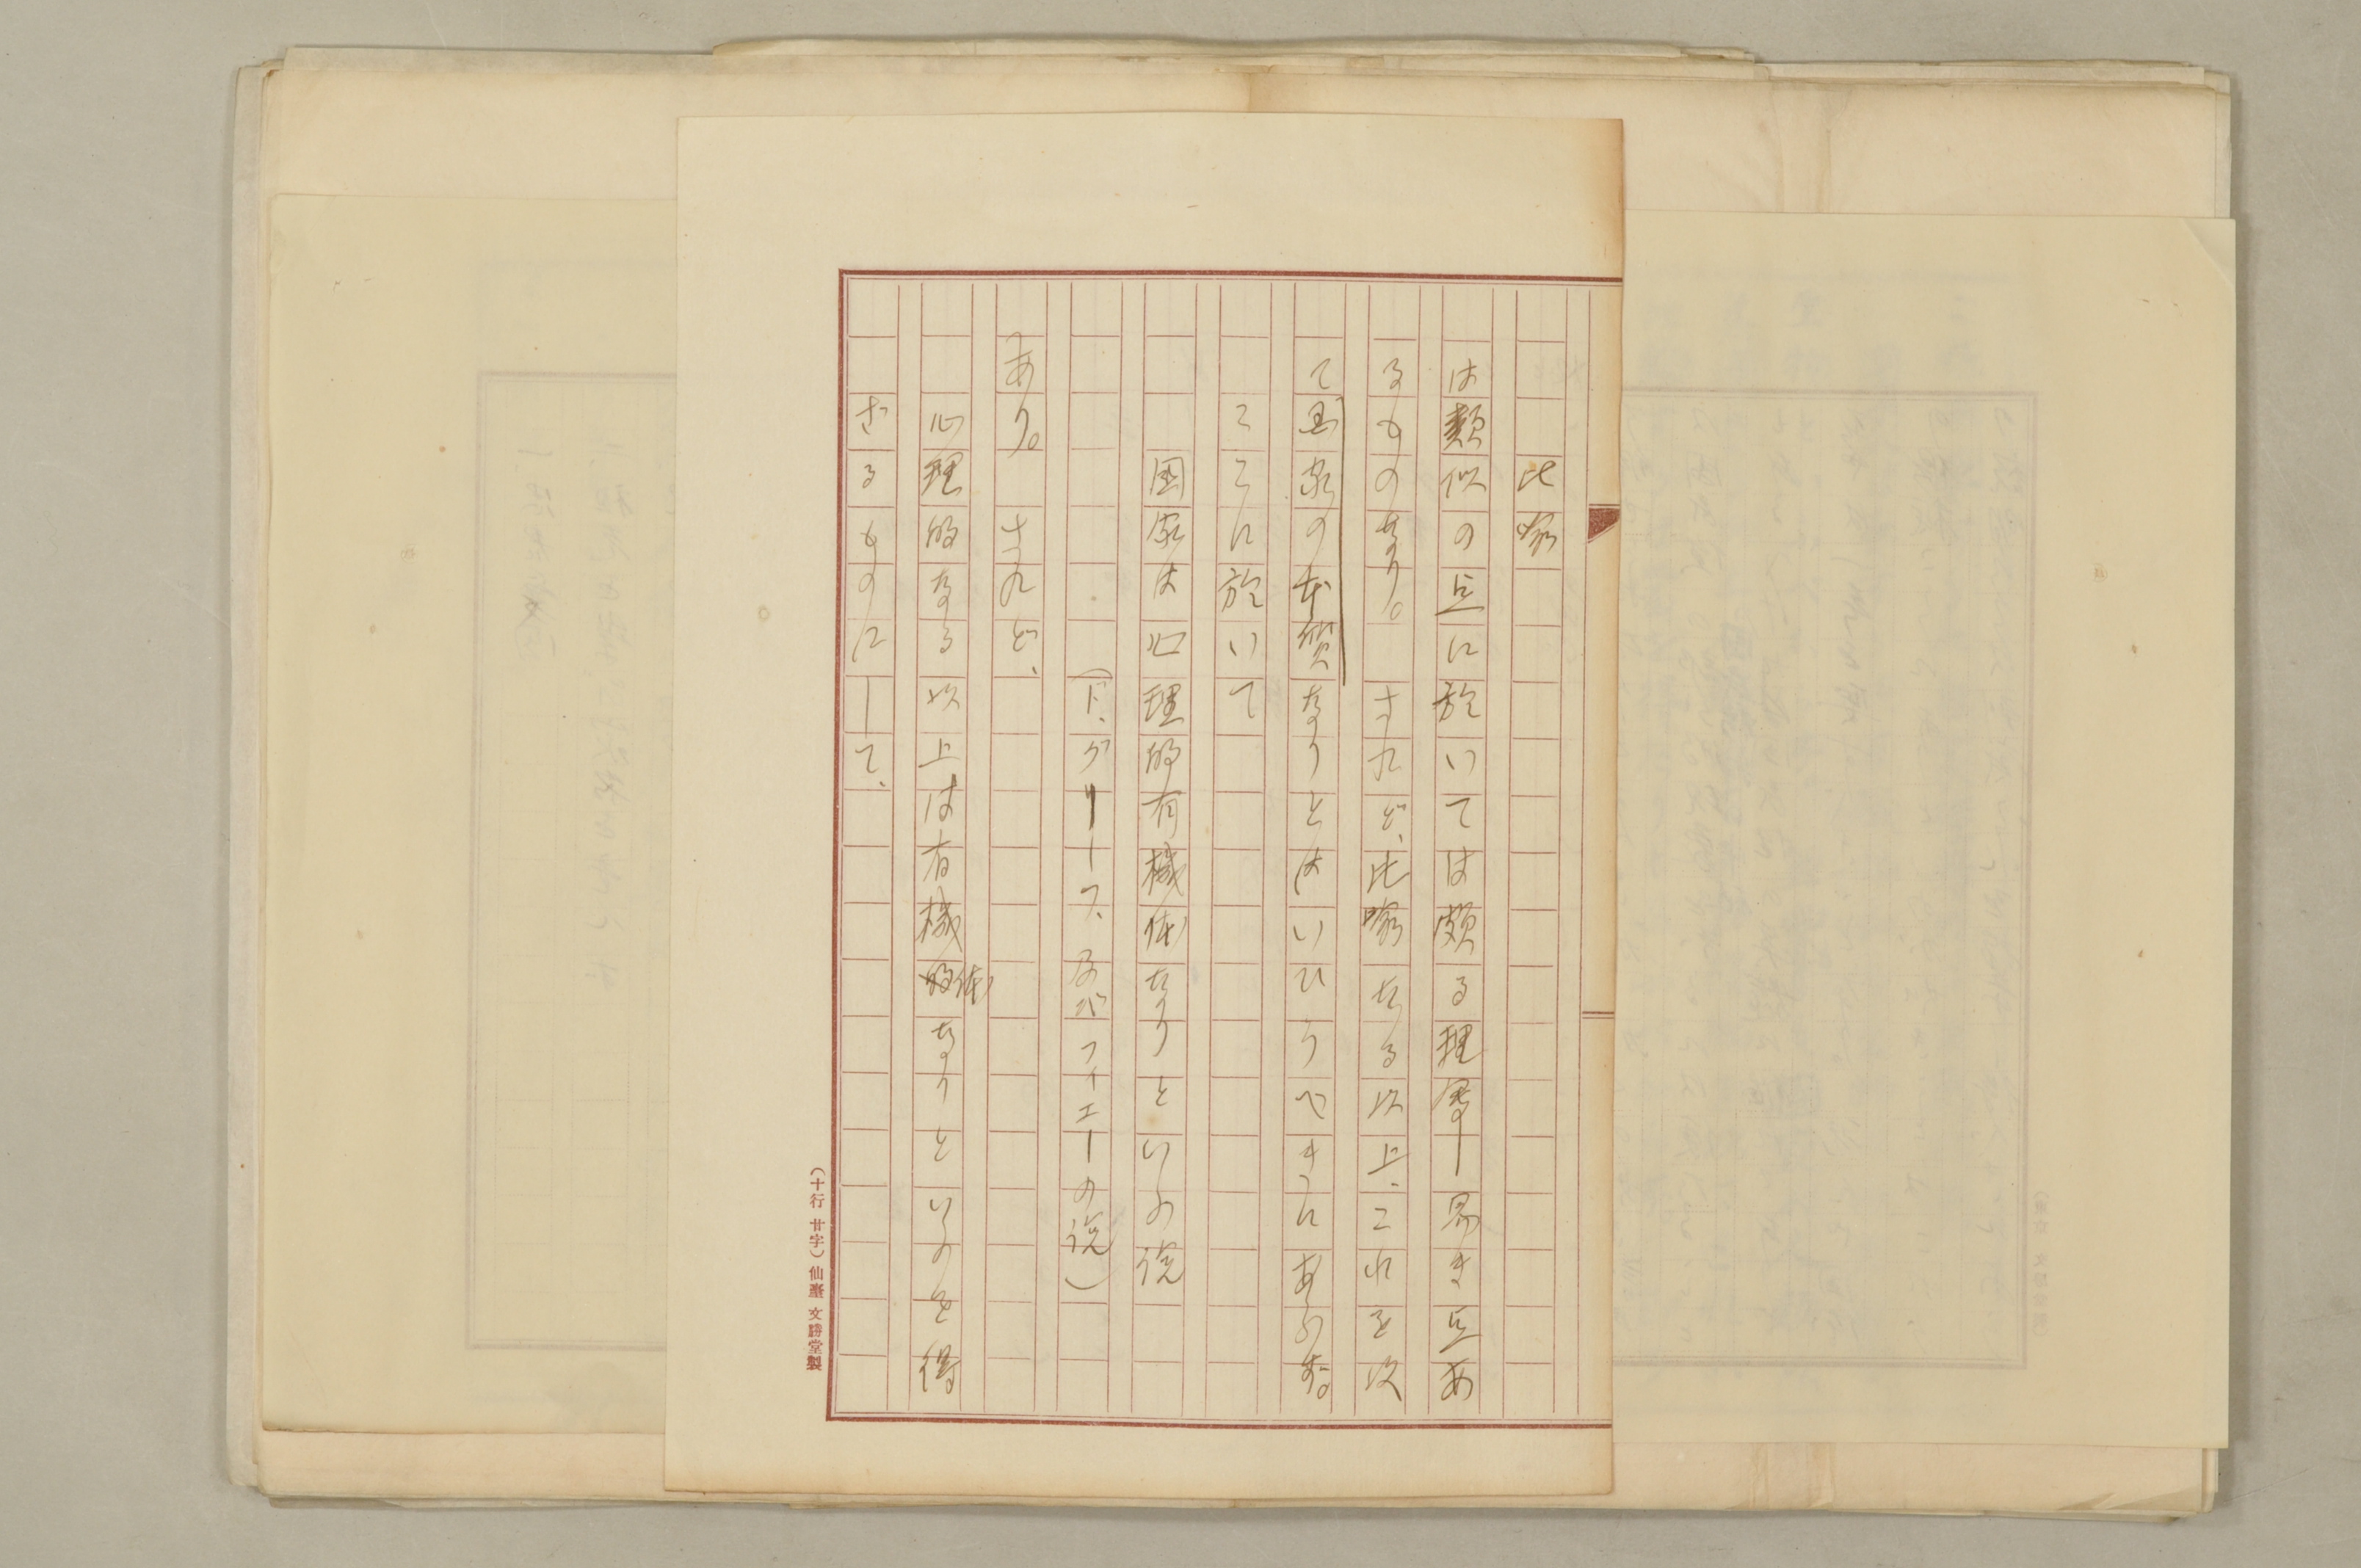 比喩
は類似の点に於いては頗る理解し易き点あ
るものなり。　されど、比喩なる以上、これを以
て国家の本質なりとはいひうべきにあらず。
ここに於いて
国家は心理的有機体なりといふの説
（ド、グリーフ、及びフイエーの説）
あり。　されど、
心理的なる以上は有機体なりといふのを得
ざるものにして、
（十行 廿字）仙臺 文勝堂製